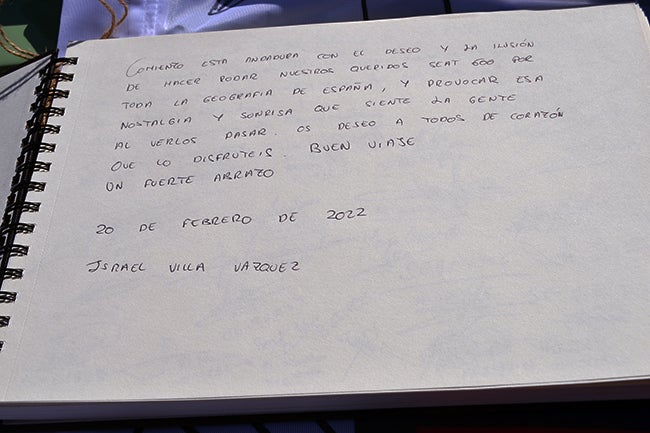 COMIENZO ESTA ANDADURA CON EL DESEO Y LA ILUSIÓN
DE HACER RODAR NUESTROS QUERIDOS SEAT 600 POR
TODA LA GEOGRAFIA DE ESPAÑA, Y PROVOCAR ESA
NOSTALGIA Y SONRISA QUE SIENTE LA GENTE
AL VERLOS PASAR. OS DESEO A TODOS DE CORAZÓN
QUE LO DISFRUTEIS. BUEN VIAJE
UN FUERTE ABRAZO
20 DE FEBRERO DE 2022
ISRAEL VILLA VAZQUEZ